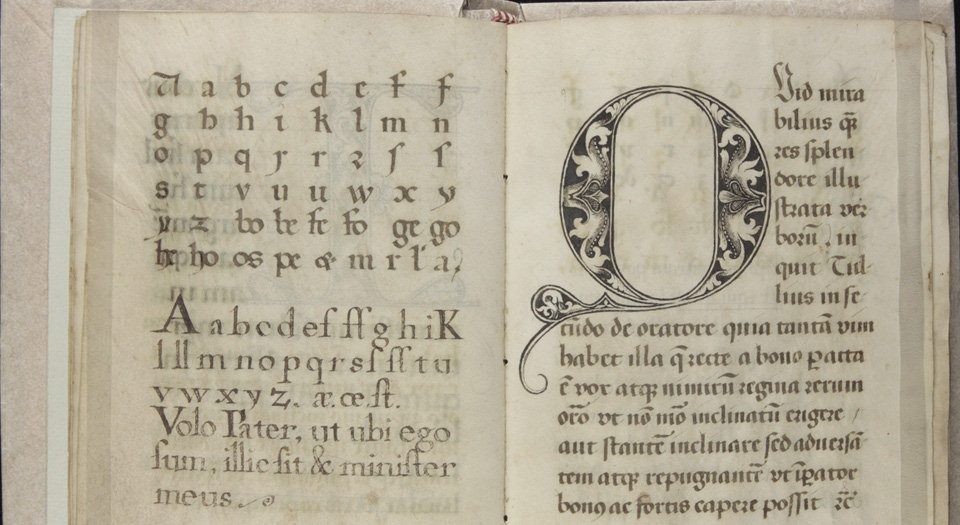 A a b c d e f f
g b h i k l m n
o p q r r 2 ſ ſ
s t v u u w x y
y z bo be fe fo ge go
he ho os pe œ m r l a,
A a b c d e f ſſ g h i K
l ll m n o p q r s ſ ſſ t u
v w x y z. æ. œ. ſt.
Volo Pater, ut ubi ego
ſum, illic ſit & miniſter
meus.
Qvid mira
bilius qȝ
res ſplen
dore illu
ſtrata ver
borū, in
quit Tul
lius in ſe
cūdo de oratore quia tantā vim
habet illa q̄ recte a bono ꝑ acta
ē vox atqȝ nimirū regina rerum
orō vt nō mō inclinatū erigere /
aut ſtantē inclinare ſed adverſā
tem atqȝ repugnantē vt īꝑator
bonꝰ ac fortis capere poſſit